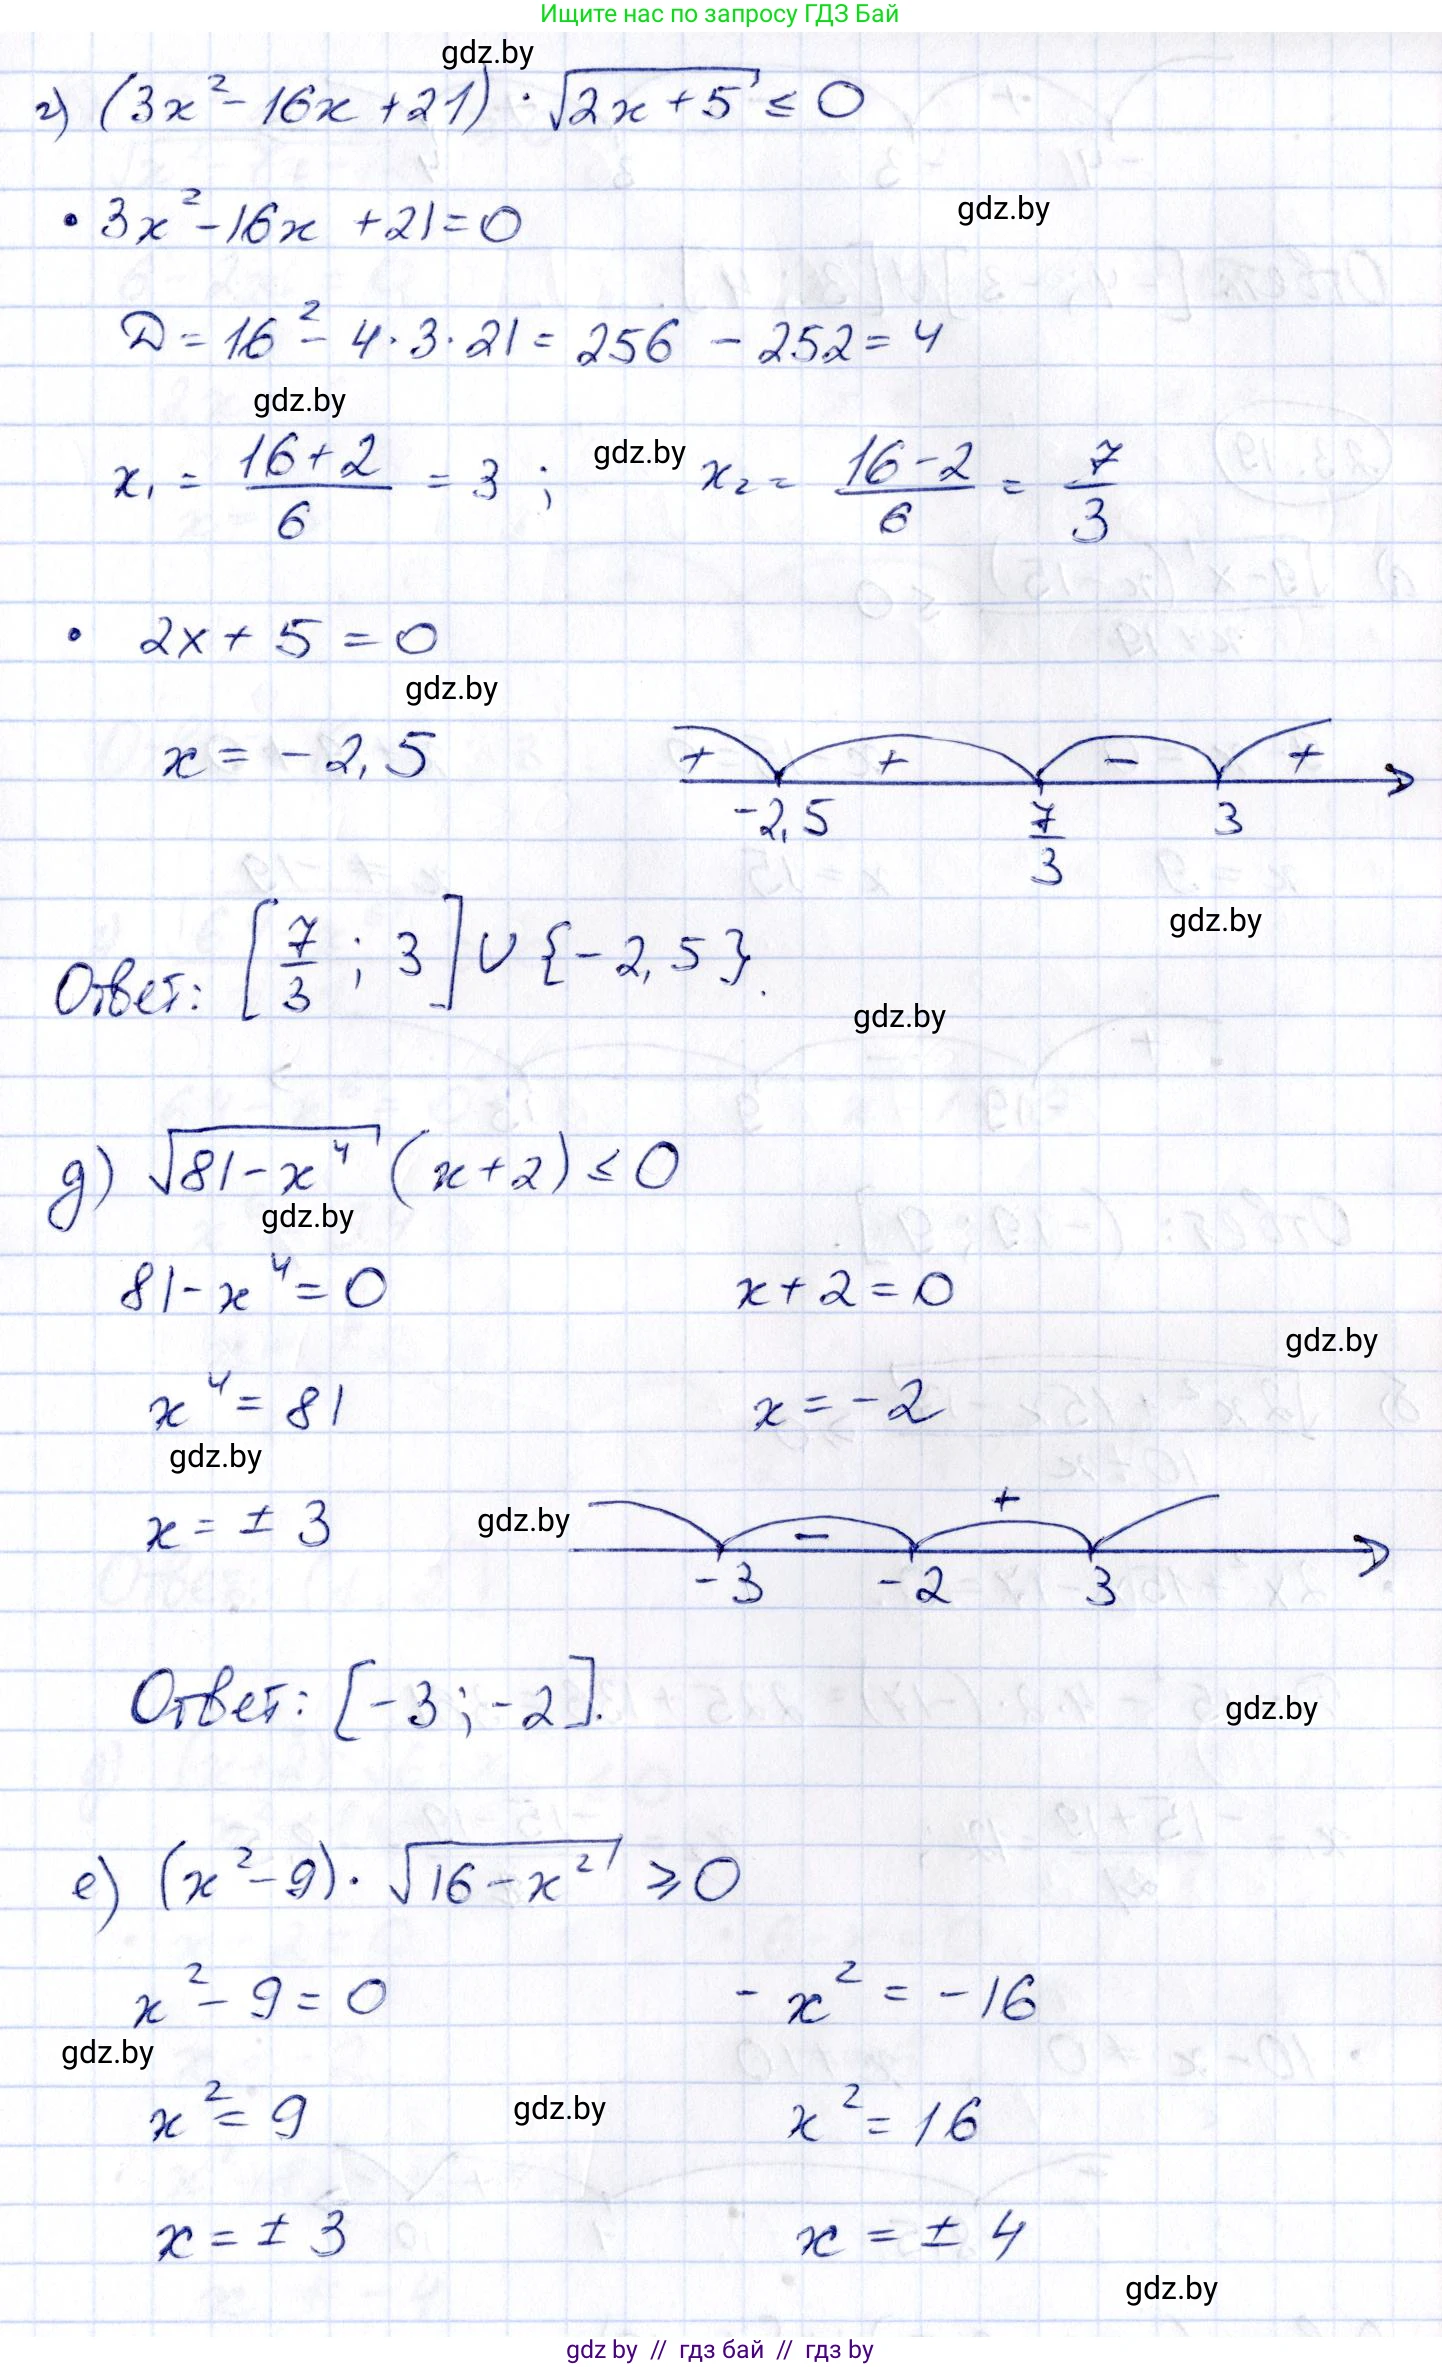 Ищите нас по запросу ГДЗ Бай
gdz.by
г) (3x² - 16x + 21) · √(2x + 5) ≤ 0
• 3x² - 16x + 21 = 0
gdz.by
D = 16² - 4 · 3 · 21 = 256 - 252 = 4
gdz.by
x₁ = (16 + 2)/6 = 3 ; gdz.by x₂ = (16 - 2)/6 = 7/3
• 2x + 5 = 0
gdz.by
x = -2,5
+ + - +
-2,5 7/3 3
gdz.by
Ответ: [7/3 ; 3] ∪ {-2,5}.
gdz.by
д) √(81 - x⁴) (x + 2) ≤ 0
gdz.by
81 - x⁴ = 0 x + 2 = 0
gdz.by
x⁴ = 81 x = -2
gdz.by
x = ± 3 gdz.by
- +
-3 -2 3
Ответ: [-3 ; -2].
gdz.by
е) (x² - 9) · √(16 - x²) ⩾ 0
x² - 9 = 0 - x² = -16
gdz.by
x² = 9 gdz.by x² = 16
x = ± 3 x = ± 4
gdz.by
gdz by // гдз бай // гдз by